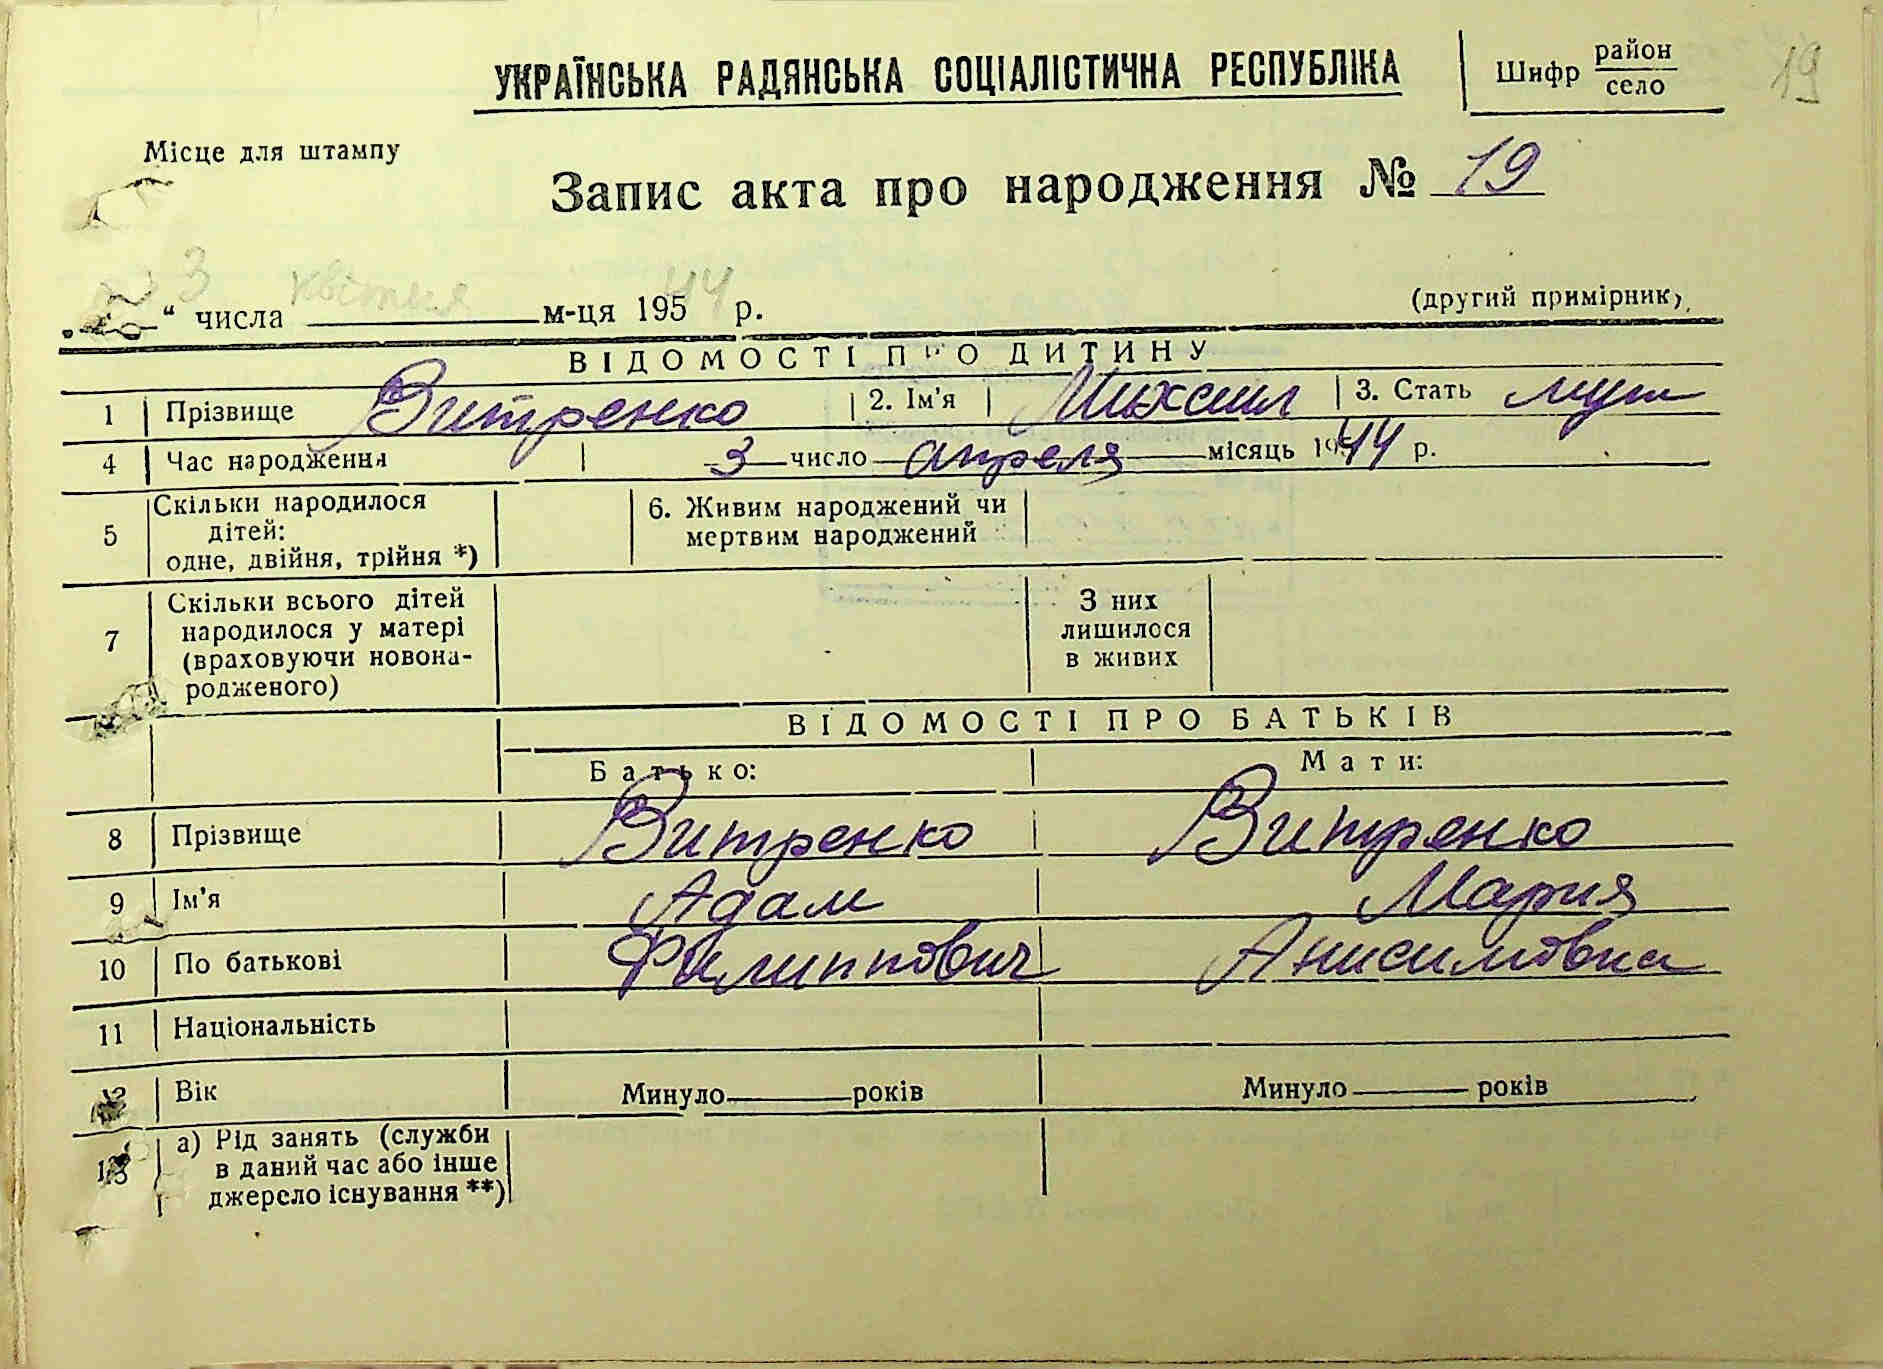 УКРАЇНСЬКА РАДЯНСЬКА СОЦІАЛІСТИЧНА РЕСПУБЛІКА
Шифр район
село
19
Місце для штампу
Запис акта про народження № 19
3 квітня 44
„ “ числа м-ця 195 р.
(другий примірник)
ВІДОМОСТІ ПРО ДИТИНУ
1 Прізвище Витренко 2. Ім'я Михаил 3. Стать муж
4 Час народження 3 число апреля місяць 1944 р.
5 Скільки народилося дітей: одне, двійня, трійня *)
6. Живим народжений чи мертвим народжений
7 Скільки всього дітей народилося у матері (враховуючи новонародженого)
З них лишилося в живих
ВІДОМОСТІ ПРО БАТЬКІВ
Батько: Мати:
8 Прізвище Витренко Витренко
9 Ім'я Адам Мария
10 По батькові Филиппович Анисимовна
11 Національність
12 Вік Минуло років Минуло років
13 а) Рід занять (служби в даний час або інше джерело існування **)